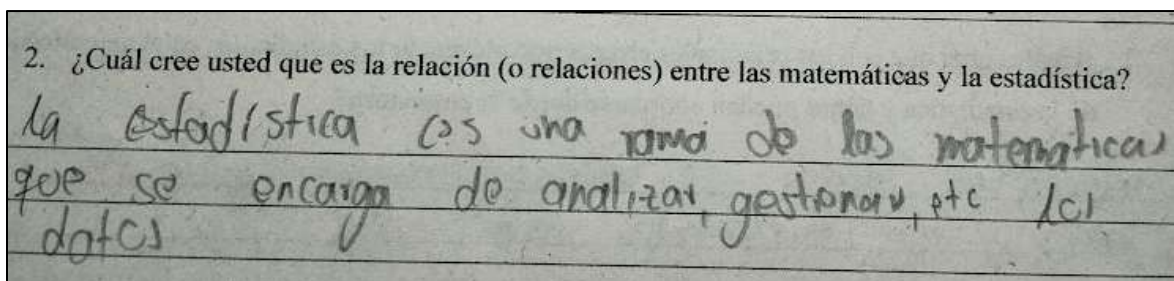 2. ¿Cuál cree usted que es la relación (o relaciones) entre las matemáticas y la estadística?
la estadística es una rama de las matematicas
que se encarga de analizar, gestionar, etc los
datos